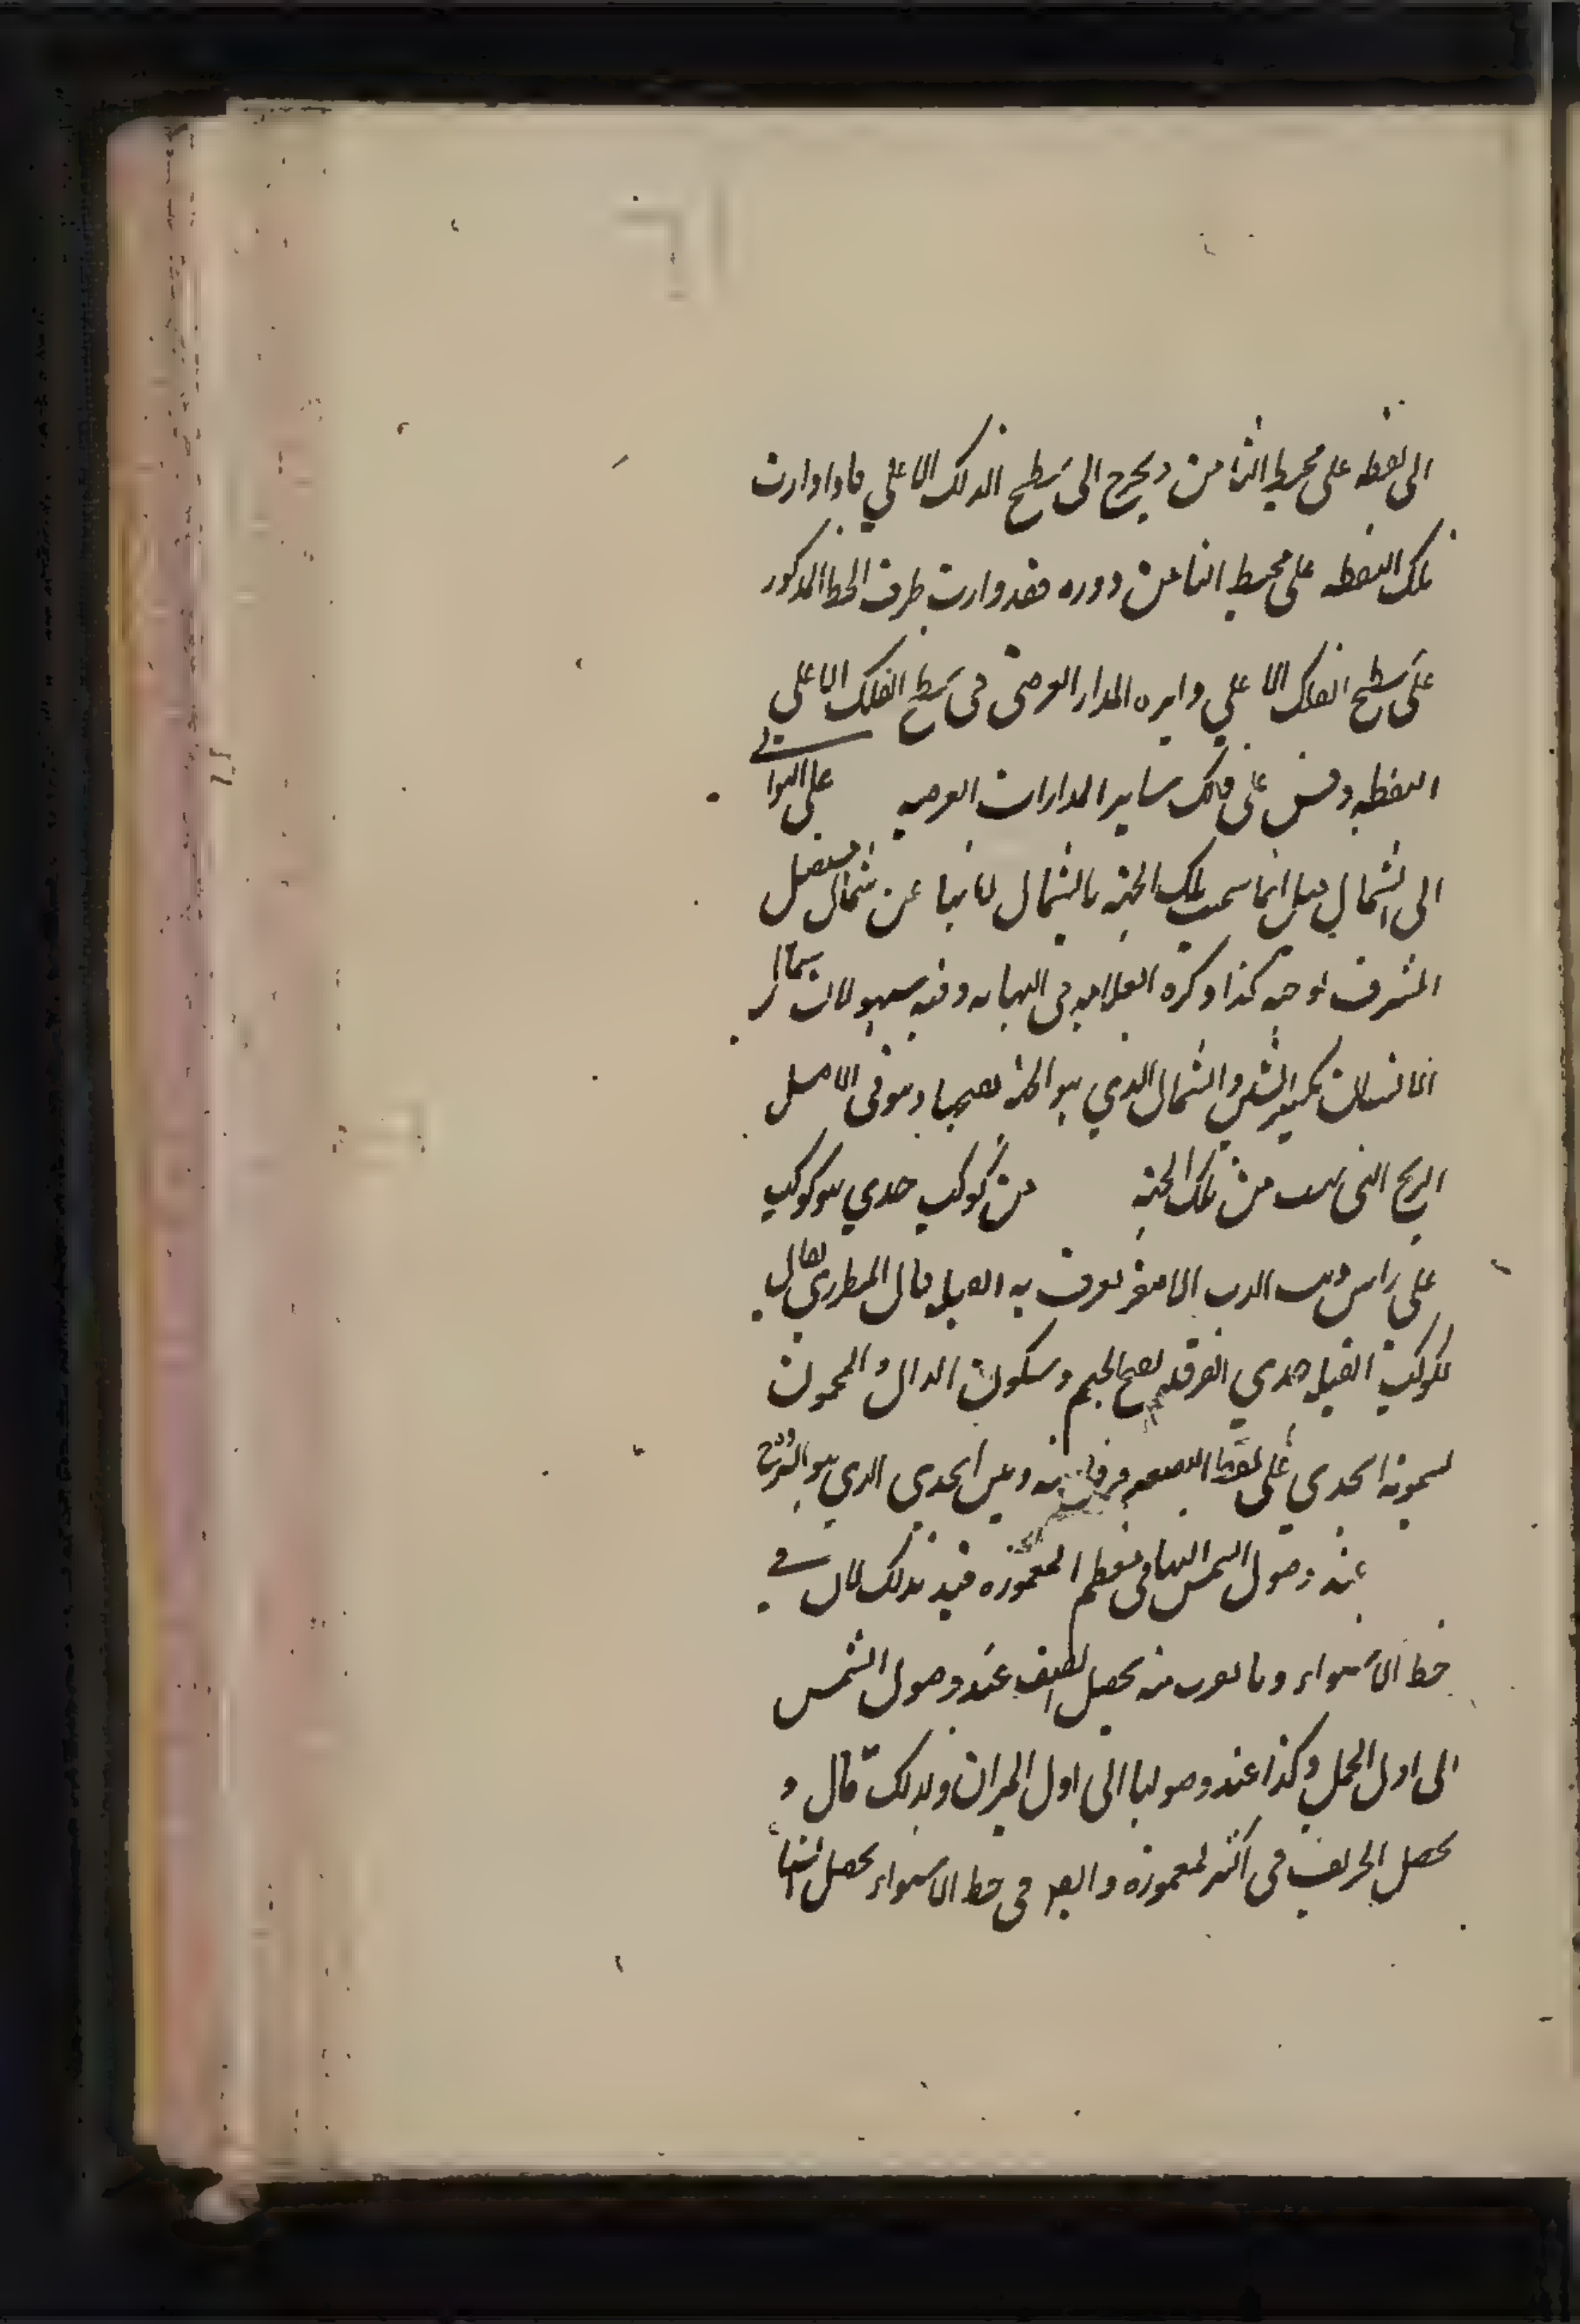 الى نقطه على محيط الثامن ويخرج الى سطح الفلك الاعلى فاذا دارت
تلك النقطه على محيط الثامن دوره فقد دارت طرف الخط المذكور
على سطح الفلك الاعلى دايره المدار العرضى فى سطح الفلك الاعلى
النقطه وقس على ذلك ساير المدارات العرضيه على التوالى
الى الشمال قيل انما سميت تلك الجهة بالشمال لانها عن شمال مستقبل
المشرق بوجهه كذا ذكره العلامه فى النهايه وفيه سهو لان شمال
الانسان بكسر الشين والشمال الذي هو الجهة بفتحها وهو فى الاصل
الريح التى تهب من تلك الجهة من كوكب جدي هو كوكب
على راس ذنب الدب الاصغر يعرف به القبله قال المطرزي يقال
لكوكب القبله جدي الفرقد بفتح الجيم وسكون الدال والمنجمون
يسمونه الجدي على لفظ التصغير فرقا بينه وبين الجدي الذي هو البرج
عند وصول الشمس اليها فى معظم المعموره قيد بذلك لان فى
خط الاستواء وما يقرب منه يحصل الصيف عند وصول الشمس
الى اول الحمل وكذا عند وصولها الى اول الميزان ولذلك قال و
يحصل الخريف فى اكثر المعموره فى خط الاستواء يحصل الشتاء